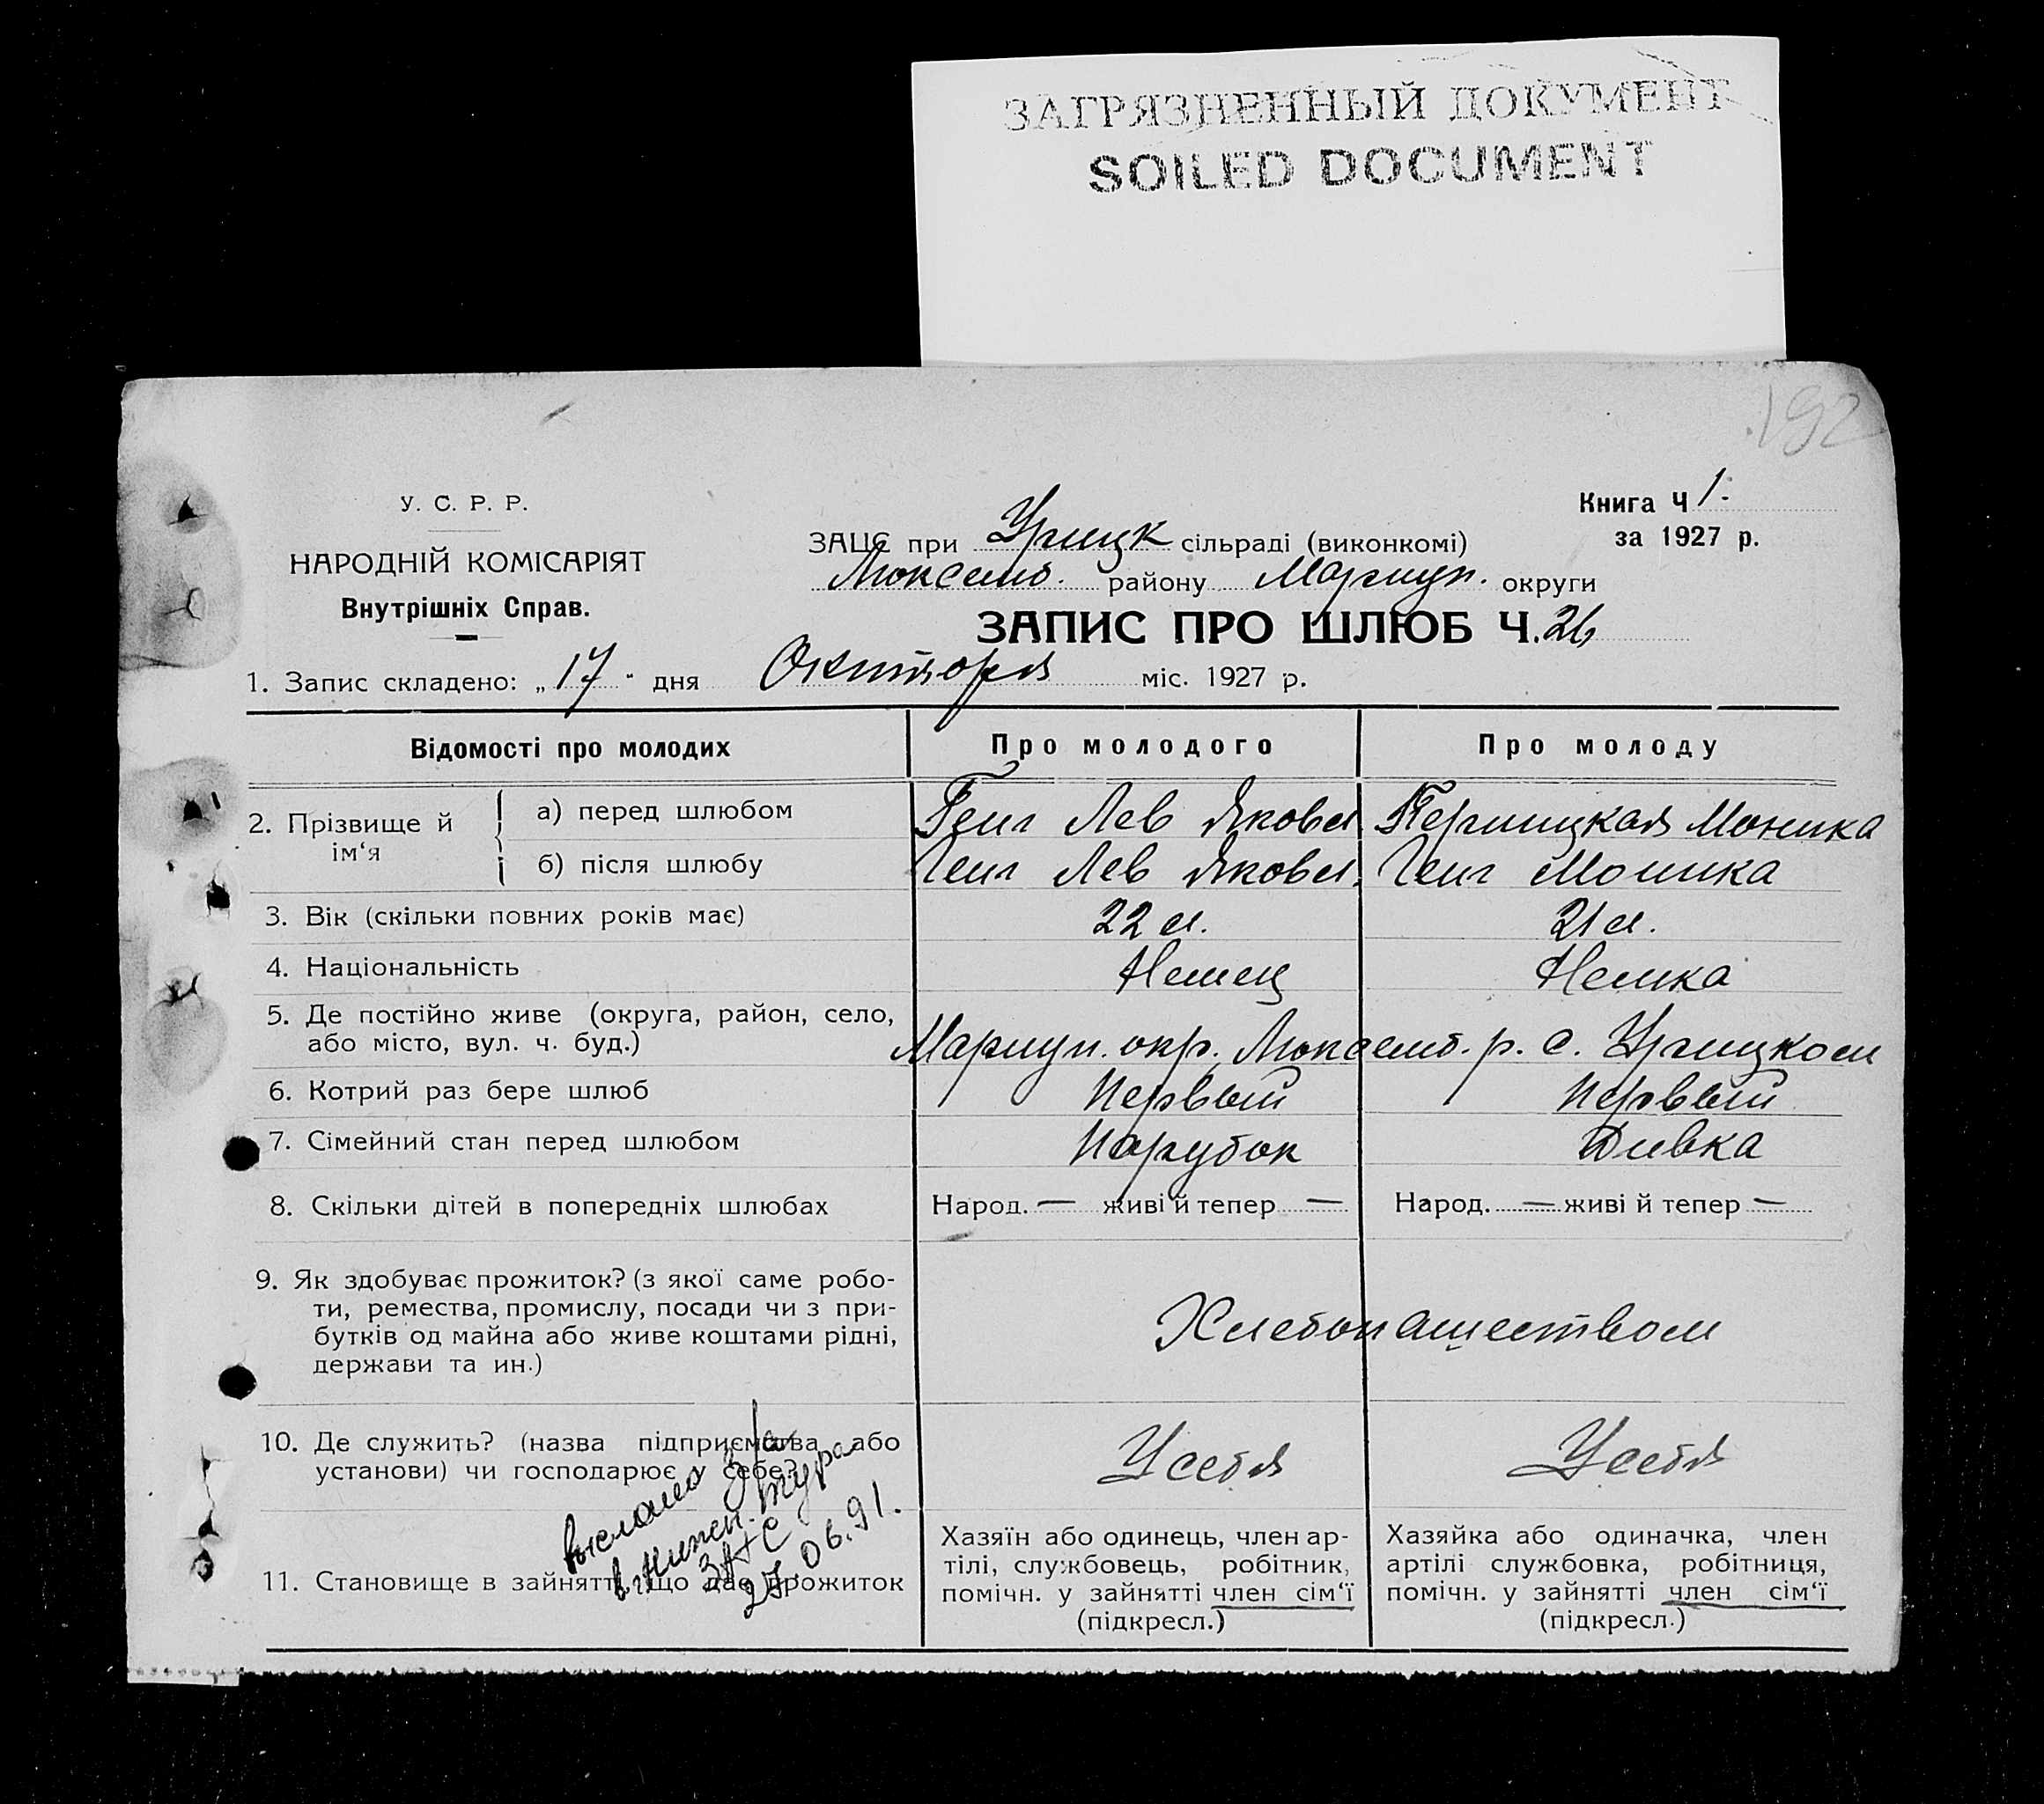 ЗАГРЯЗНЕННЫЙ ДОКУМЕНТ
SOILED DOCUMENT
192
У. С. Р. Р.
НАРОДНІЙ КОМІСАРІЯТ
Внутрішніх Справ.
Книга Ч 1.
за 1927 р.
ЗАЦС при Урицк сільраді (виконкомі)
Люксемб. району Мариуп. округи
ЗАПИС ПРО ШЛЮБ Ч. 26
1. Запис складено: „17" дня Октября міс. 1927 р.
Відомості про молодих
Про молодого
Про молоду
2. Прізвище й ім‘я
а) перед шлюбом
Лев Яковл.
Моника
б) після шлюбу
Лев Яковл.
Моника
3. Вік (скільки повних років має)
22 л.
21 л.
4. Національність
Немец
Немка
5. Де постійно живе (округа, район, село,
або місто, вул. ч. буд.)
Мариуп. окр. Люксемб. р. с. Урицком
6. Котрий раз бере шлюб
Первый
Первый
7. Сімейний стан перед шлюбом
Парубок
Дивка
8. Скільки дітей в попередніх шлюбах
Народ. — живі й тепер —
Народ. — живі й тепер —
9. Як здобуває прожиток? (з якої саме робо-
ти, ремества, промислу, посади чи з при-
бутків од майна або живе коштами рідні,
держави та ин.)
Хлебопашеством
10. Де служить? (назва підприємства або
установи) чи господарює у себе?
У себя
У себя
11. Становище в зайнятті, що дає прожиток
Хазяїн або одинець, член ар-
тілі, службовець, робітник,
помічн. у зайнятті член сім‘ї
(підкресл.)
Хазяйка або одиначка, член
артілі службовка, робітниця,
помічн. у зайнятті член сім‘ї
(підкресл.)
выслано
ЗАГС
27.06.91.